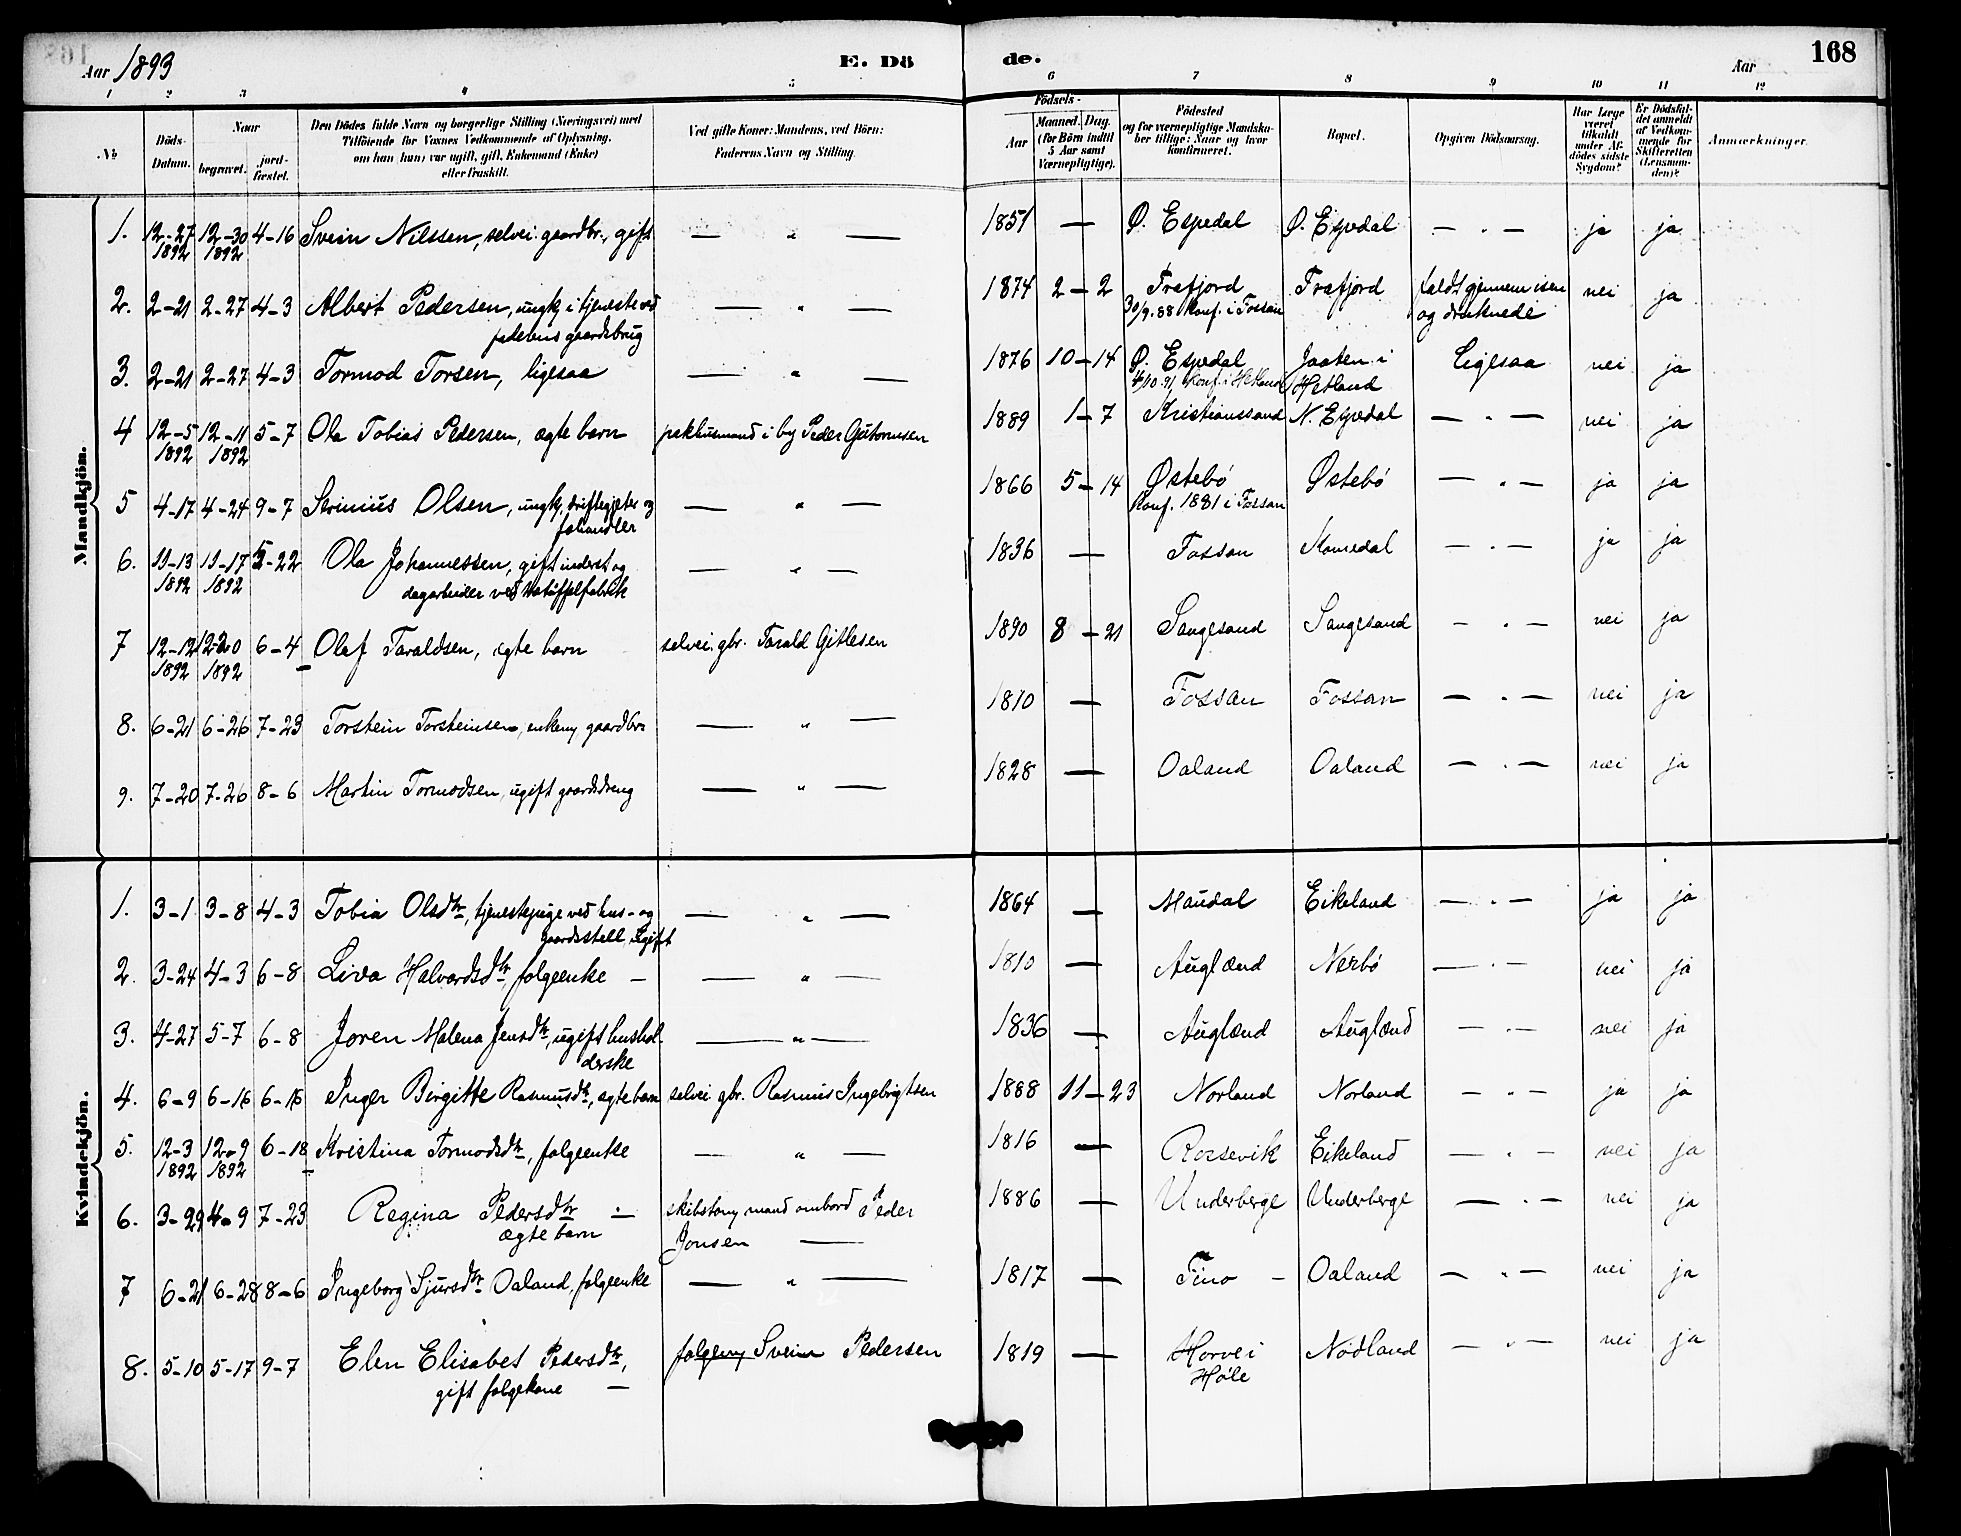 Aar 1893 E. Dö de. Aar 168
1 2 3 4 5 6 7 8 9 10 11 12
№
Döds-Datum.
Naar
begravet.
jord-fæstet.
Den Dödes fulde Navn og borgerlige Stilling (Næringsvei) med
Tilföiende for Voxnes Vedkommende af Oplysning,
om han (hun) var ugift, gift, Enkemand (Enke)
eller fraskilt.
Ved gifte Koner: Mandens, ved Börn:
Faderens Navn og Stilling.
Födsels-
Aar
Maaned. Dag.
(for Börn indtil
5 Aar samt
Værnepligtige).
Födested
og for værnepligtige Mandska-
ber tillige: Naar og hvor
konfirmeret.
Bopæl.
Opgiven Dödsaarsag.
Har Læge
været
tilkaldt
under Af-
dödes sidste
Sygdom?
Er Dödsfal-
det anmeldt
af Vedkom-
mende for
Skifteretten
(Lensman-
den)?
Anmærkninger.
Mandkjön.
1. 12-27 1892 12-30 1892 4-16 Svein Nilssen, selvei. gaardbr., gift — " — 1851 — Ø. Espedal Ø. Espedal — " — ja ja
2. 2-21 2-27 4-3 Albert Pedersen, ungk. i tjeneste ved — " — 1874 2-2 Frafjord Frafjord faldt gjennem isen nei ja
faderens gaardsbrug 30/9.88 konf. i Fossan og druknede
3. 2-21 2-27 4-3 Tormod Torsen, ligesaa — " — 1876 10-14 Ø. Espedal Jaaten i Ligesaa nei ja
4/10.91 konf. i Hetland Hetland
4 12-5 1892 12-11 1892 5-7 Ola Tobias Pedersen, ægte barn pakhusmand i by Peder Gutormsen 1889 1-7 Kristianssand N. Espedal — " — nei ja
5 4-17 4-24 9-7 Serinius Olsen, ungk, driftegjeter og — " — 1866 5-14 Østebö Østebö — " — ja ja
fehandler Konf. 1881 i Fossan
6. 11-13 1892 11-17 1892 5-22 Ola Johannessen, gift inderst og — " — 1836 — Fossan Komedal — " — ja ja
dagarbeider ved
7 12-12 1892 12-20 1892 6-4 Olaf Taraldsen, ægte barn selvei. gbr. Tarald Gitlesen 1890 8-21 Sangesand Sangesand — " — nei ja
8. 6-21 6-26 7-23 Torstein Torsteinsen, enkem, gaardbr. — " — 1810 — Fossan Fossan — " — nei ja
9. 7-20 7-26 8-6 Martin Tormodsen, ugift gaardsdreng — " — 1828 — Oaland Oaland — " — nei ja
Kvindekjön.
1. 3-1 3-8 4-3 Tobia Olsdtr, tjenestepige ved hus- og — " — 1864 — Maudal Eikeland — " — ja ja
gaardsstell, ugift
2. 3-24 4-3 6-8 Liva Halvardsdtr, folgeenke — — " — 1810 — Auglænd Nerbö — " — nei ja
3. 4-27 5-7 6-8 Joren Malena Jensdtr, ugift hushol- — " — 1836 — Auglænd Auglænd — " — nei ja
derske
4. 6-9 6-16 6-16 Inger Birgitte Rasmusdtr, ægte barn selvei. gbr. Rasmus Ingebrigtsen 1888 11-23 Norland Norland — " — ja ja
5. 12-3 1892 12-9 1892 6-18 Kristina Tormodsdtr, folgeenke — " — 1816 — Rossevik Eikeland — " — nei ja
6. 3-29 4-9 7-23 Regina Pedersdtr — skibstom, mand ombord Peder 1886 — Underberge Underberge — " — nei ja
ægte barn Jonsen —
7 6-21 6-28 8-6 Ingeborg Sjursdtr Oaland, folgeenke — " — 1817 — Tino — Oaland — " — nei ja
8. 5-10 5-17 9-7 Elen Elisabet Pedersdtr, folgem, Svein Pedersen 1819 — Horvei Nodland — " — nei ja
gift folgekone — Höle